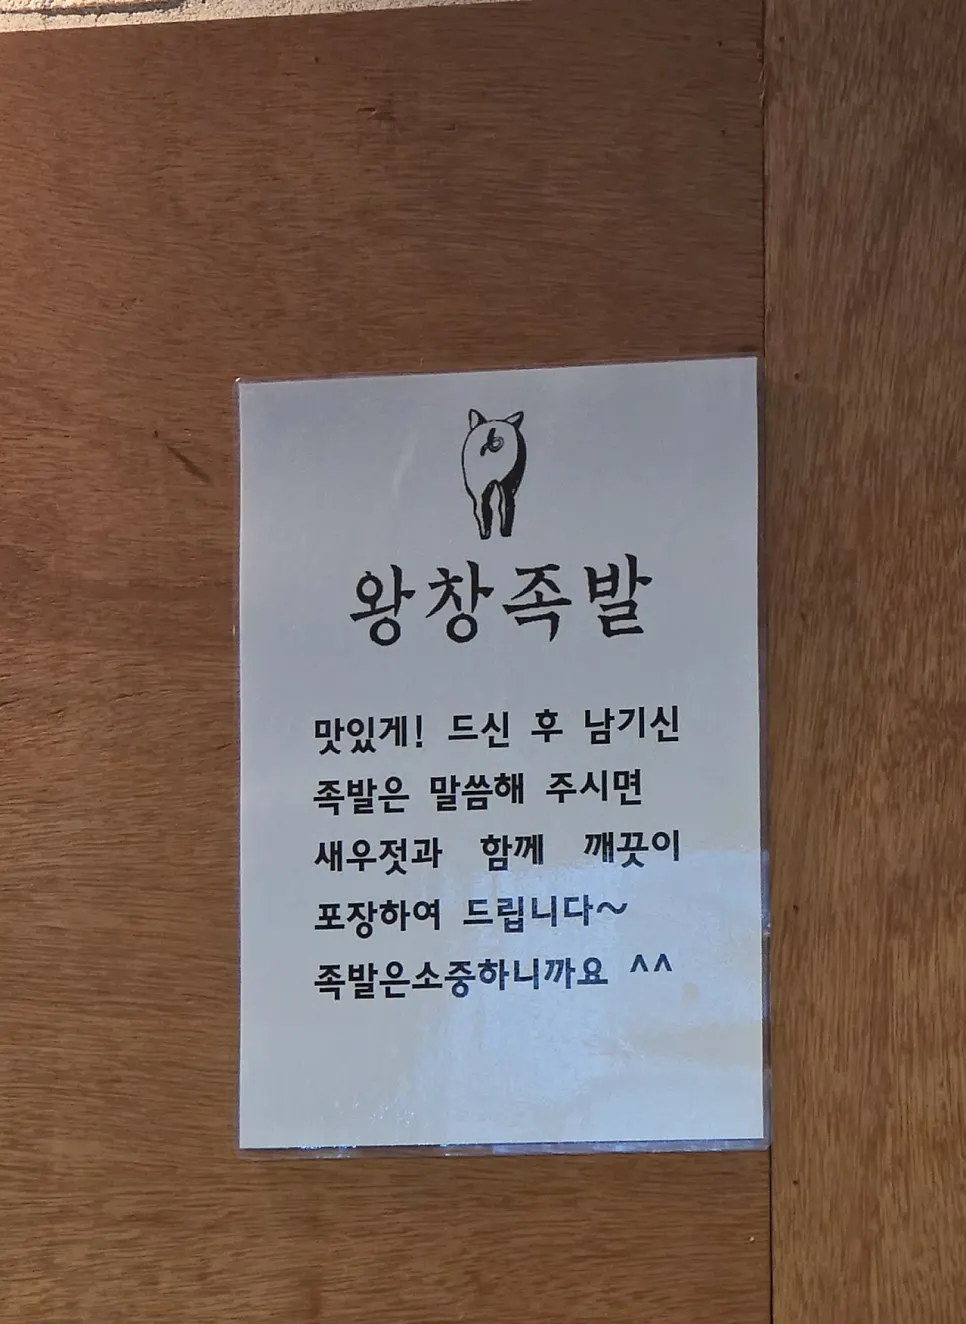 왕창족발
맛있게! 드신 후 남기신
족발은 말씀해 주시면
새우젓과 함께 깨끗이
포장하여 드립니다~
족발은소중하니까요 ^^